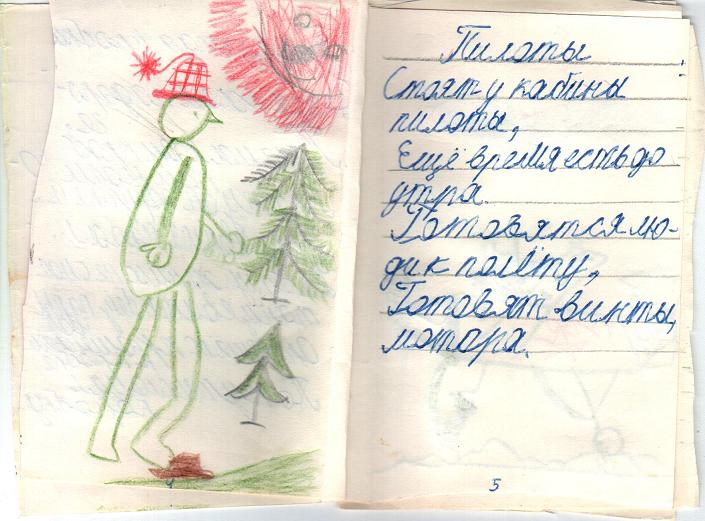 Пилоты
Стоят у кабины
пилоты,
Ещё время есть до
утра.
Готовятся лю-
ди к полёту,
Готовят винты,
мотора.
4
5